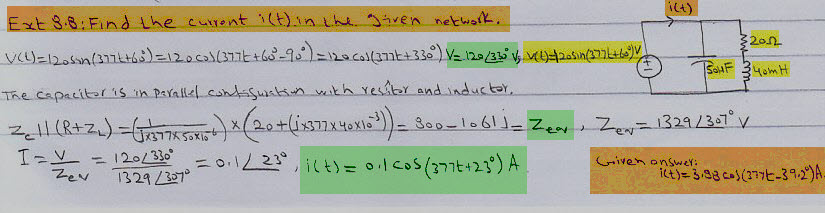 Ext 8.8: Find the current i(t) in the given network.
V(t)=120sin(377t+60°)=120cos(377t+60°-90°)=120cos(377t+330°) V=120∠330° V, V(t)=120sin(377t+60°)V
The capacitor is in parallel configuration with resistor and inductor.
Zc||(R+ZL)=(1/(j×377×50×10⁻⁶))×(20+(j×377×40×10⁻³))=800-1061j=Zeqv, Zeqv=1329∠307° V
I=V/Zeqv=120∠330°/1329∠307°=0.1∠23°, i(t)=0.1cos(377t+23°)A
Given answer:
i(t)=3.88cos(377t-39.2°)A.
i(t)
20Ω
50uF
40mH
+
-